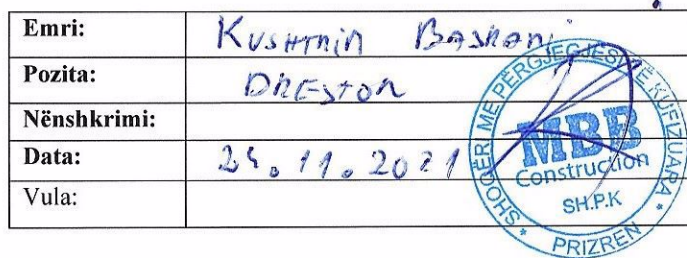 Emri: Kushtrim Baskani
Pozita: DREJTOR
Nënshkrimi:
Data: 25.11.2021
Vula:
SHOQËRI ME PËRGJEGJËSI TË KUFIZUARA
MBB
Construction
SH.P.K
* PRIZREN *